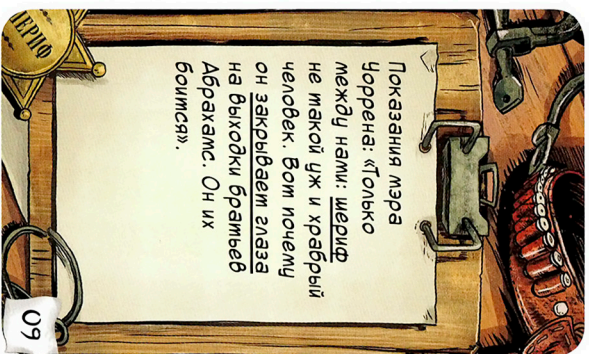 ШЕРИФ
Показания мэра
Уоррена: «Только
между нами: шериф
не такой уж и храбрый
человек. Вот почему
он закрывает глаза
на выходки братьев
Абрахамс. Он их
боится».
09